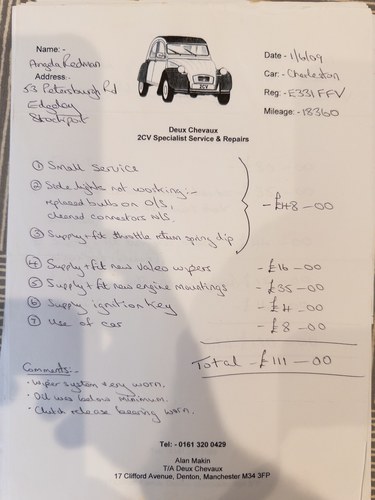 Name: -
Angela Redman
Address -
53 Petersburgh Rd
Edgeley
Stockport
2CV
Date - 1/6/09
Car: - Charleston
Reg: - E331 FFV
Mileage: - 18360
Deux Chevaux
2CV Specialist Service & Repairs
① Small Service
② Side lights not working:-
replaced bulb on O/S,
cleaned connectors N/S.
③ Supply + fit throttle return spring clip
- £48 - 00
④ Supply + fit new Valeo wipers - £16 - 00
⑤ Supply + fit new engine mountings - £35 - 00
⑥ Supply ignition key - £4 - 00
⑦ Use of car - £8 - 00
Total - £111 - 00
Comments:-
· Wiper system very worn.
· Oil was below minimum.
· Clutch release bearing worn.
Tel: - 0161 320 0429
Alan Makin
T/A Deux Chevaux
17 Clifford Avenue, Denton, Manchester M34 3FP